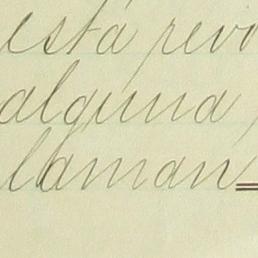 está revo
alguna
laman